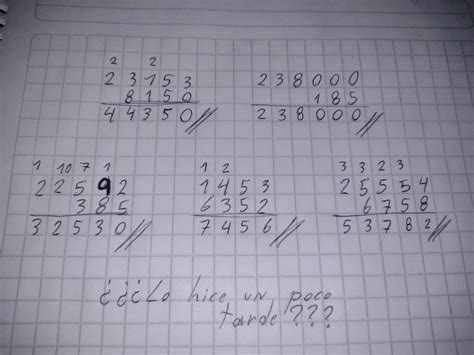 2 2
2 3 1 5 3
8 1 5 0
4 4 3 5 0
2 3 8 0 0 0
1 8 5
2 3 8 0 0 0
1 10 7 1
2 2 5 9 2
3 8 5
3 2 5 3 0
1 2
1 4 5 3
6 3 5 2
7 4 5 6
3 3 2 3
2 5 5 5 4
6 7 5 8
5 3 7 8 2
¿¿¿Lo hice un poco
tarde???